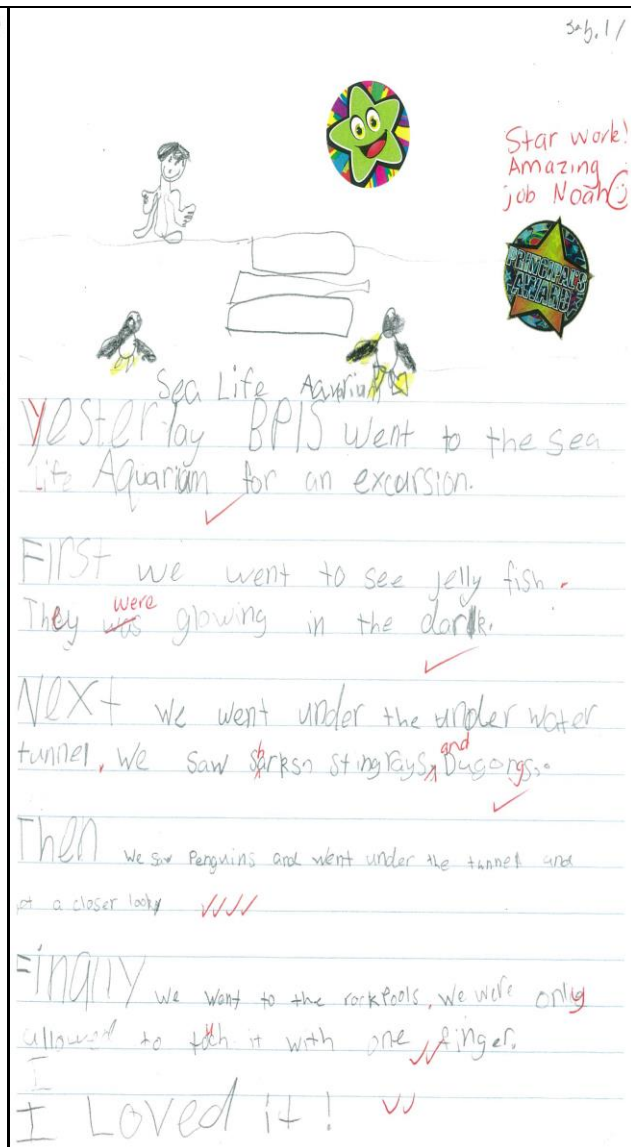 Star work!
Amazing
job Noah
PRINCIPAL'S
AWARD
Sea Life Aquarium
Yesterday BPIS went to the sea
Life Aquariam for an excursion.
First we went to see jelly fish.
They was were glowing in the dark.
Next we went under the under water
tunnel. We saw sharks, stingrays, and Dugongs.
Then we saw Penguins and went under the tunnel and
got a closer look
Finally we went to the rockPools. We were only
allowed to touch it with one finger.
I
I Loved it!